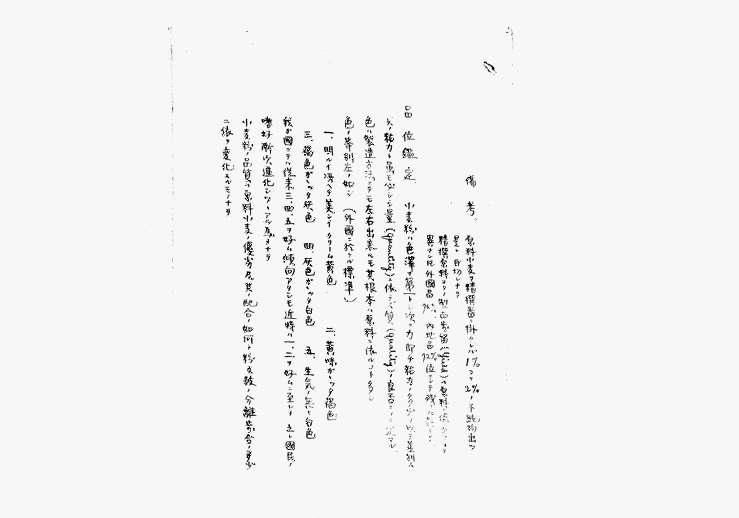 備考。 原料小麦ヲ精撰器ニ掛クレバ1%ヨリ2%ノ不純物出ヅ
是レ
精撰原料ヨリノ製出歩留(Yield)ハ原料ニ依テ
異ナレ圧外國品75%、内地品72%位
品位鑑定 小麦粉ハ色澤ヲ第一トシ次ニ力即チ粘力ノ多少ヲ以テ差別ス
尚粘力ト雖モ必シモ量(Quantity)ニ依ラズ質(Quality)ノ良否ニヨリ定マル
色ハ製造方法ニテモ左右出来ルモ其根本ハ原料ニ依ルコト多シ
色ノ等別左ノ如シ (外國ニ於ケル標準)
一、明ルイ澄ヘタ美シイクリーム黄色 二、黄味ガヽッタ褐色
三、褐色ガヽッタ灰色 四、灰色ガヽッタ白色 五、生気ノ無キ白色
我ガ國ニテハ従来三、四、五ヲ好ム傾向アリシモ近時ハ一、二ヲ好ムニ至レリ 之レ國民ノ
嗜好漸次進化シツヽアル為メナリ
小麦粉ノ品質ハ原料小麦ノ優劣及其ノ配合ノ如何ト粉ノ分離歩合ノ多少
ニ依テ変化スルモノナリ